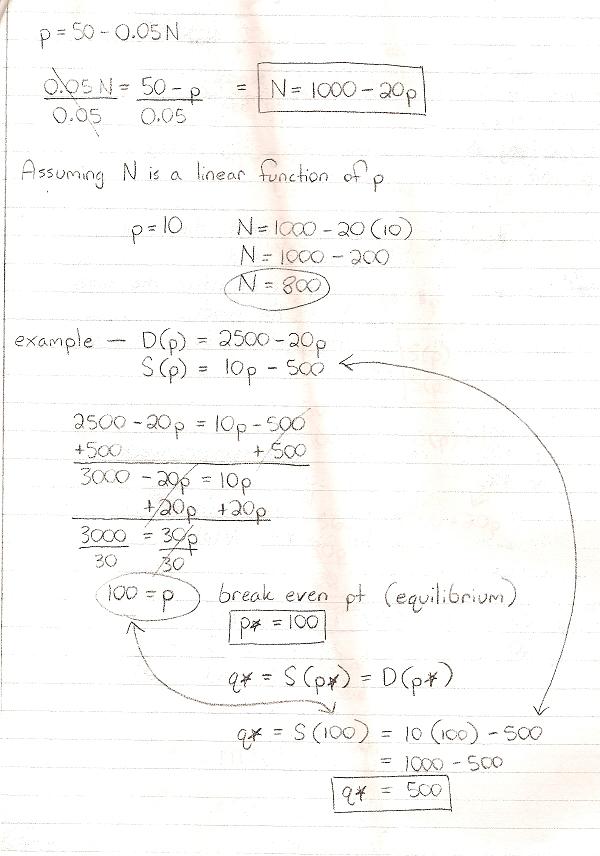 p = 50 - 0.05N
0.05N = 50 - p = N = 1000 - 20p
0.05 0.05
Assuming N is a linear function of p
p = 10 N = 1000 - 20(10)
N = 1000 - 200
N = 800
example — D(p) = 2500 - 20p
S(p) = 10p - 500
2500 - 20p = 10p - 500
+500 +500
3000 - 20p = 10p
+20p +20p
3000 = 30p
30 30
100 = p break even pt (equilibrium)
p* = 100
q* = S(p*) = D(p*)
q* = S(100) = 10(100) - 500
= 1000 - 500
q* = 500